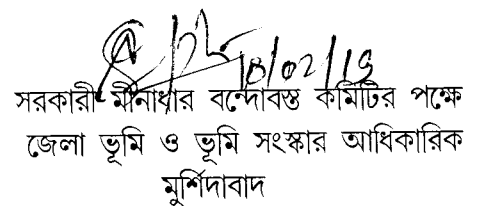 18/02/19
সরকারী মীনাধার বন্দোবস্ত কমিটির পক্ষে
জেলা ভূমি ও ভূমি সংস্কার আধিকারিক
মুর্শিদাবাদ